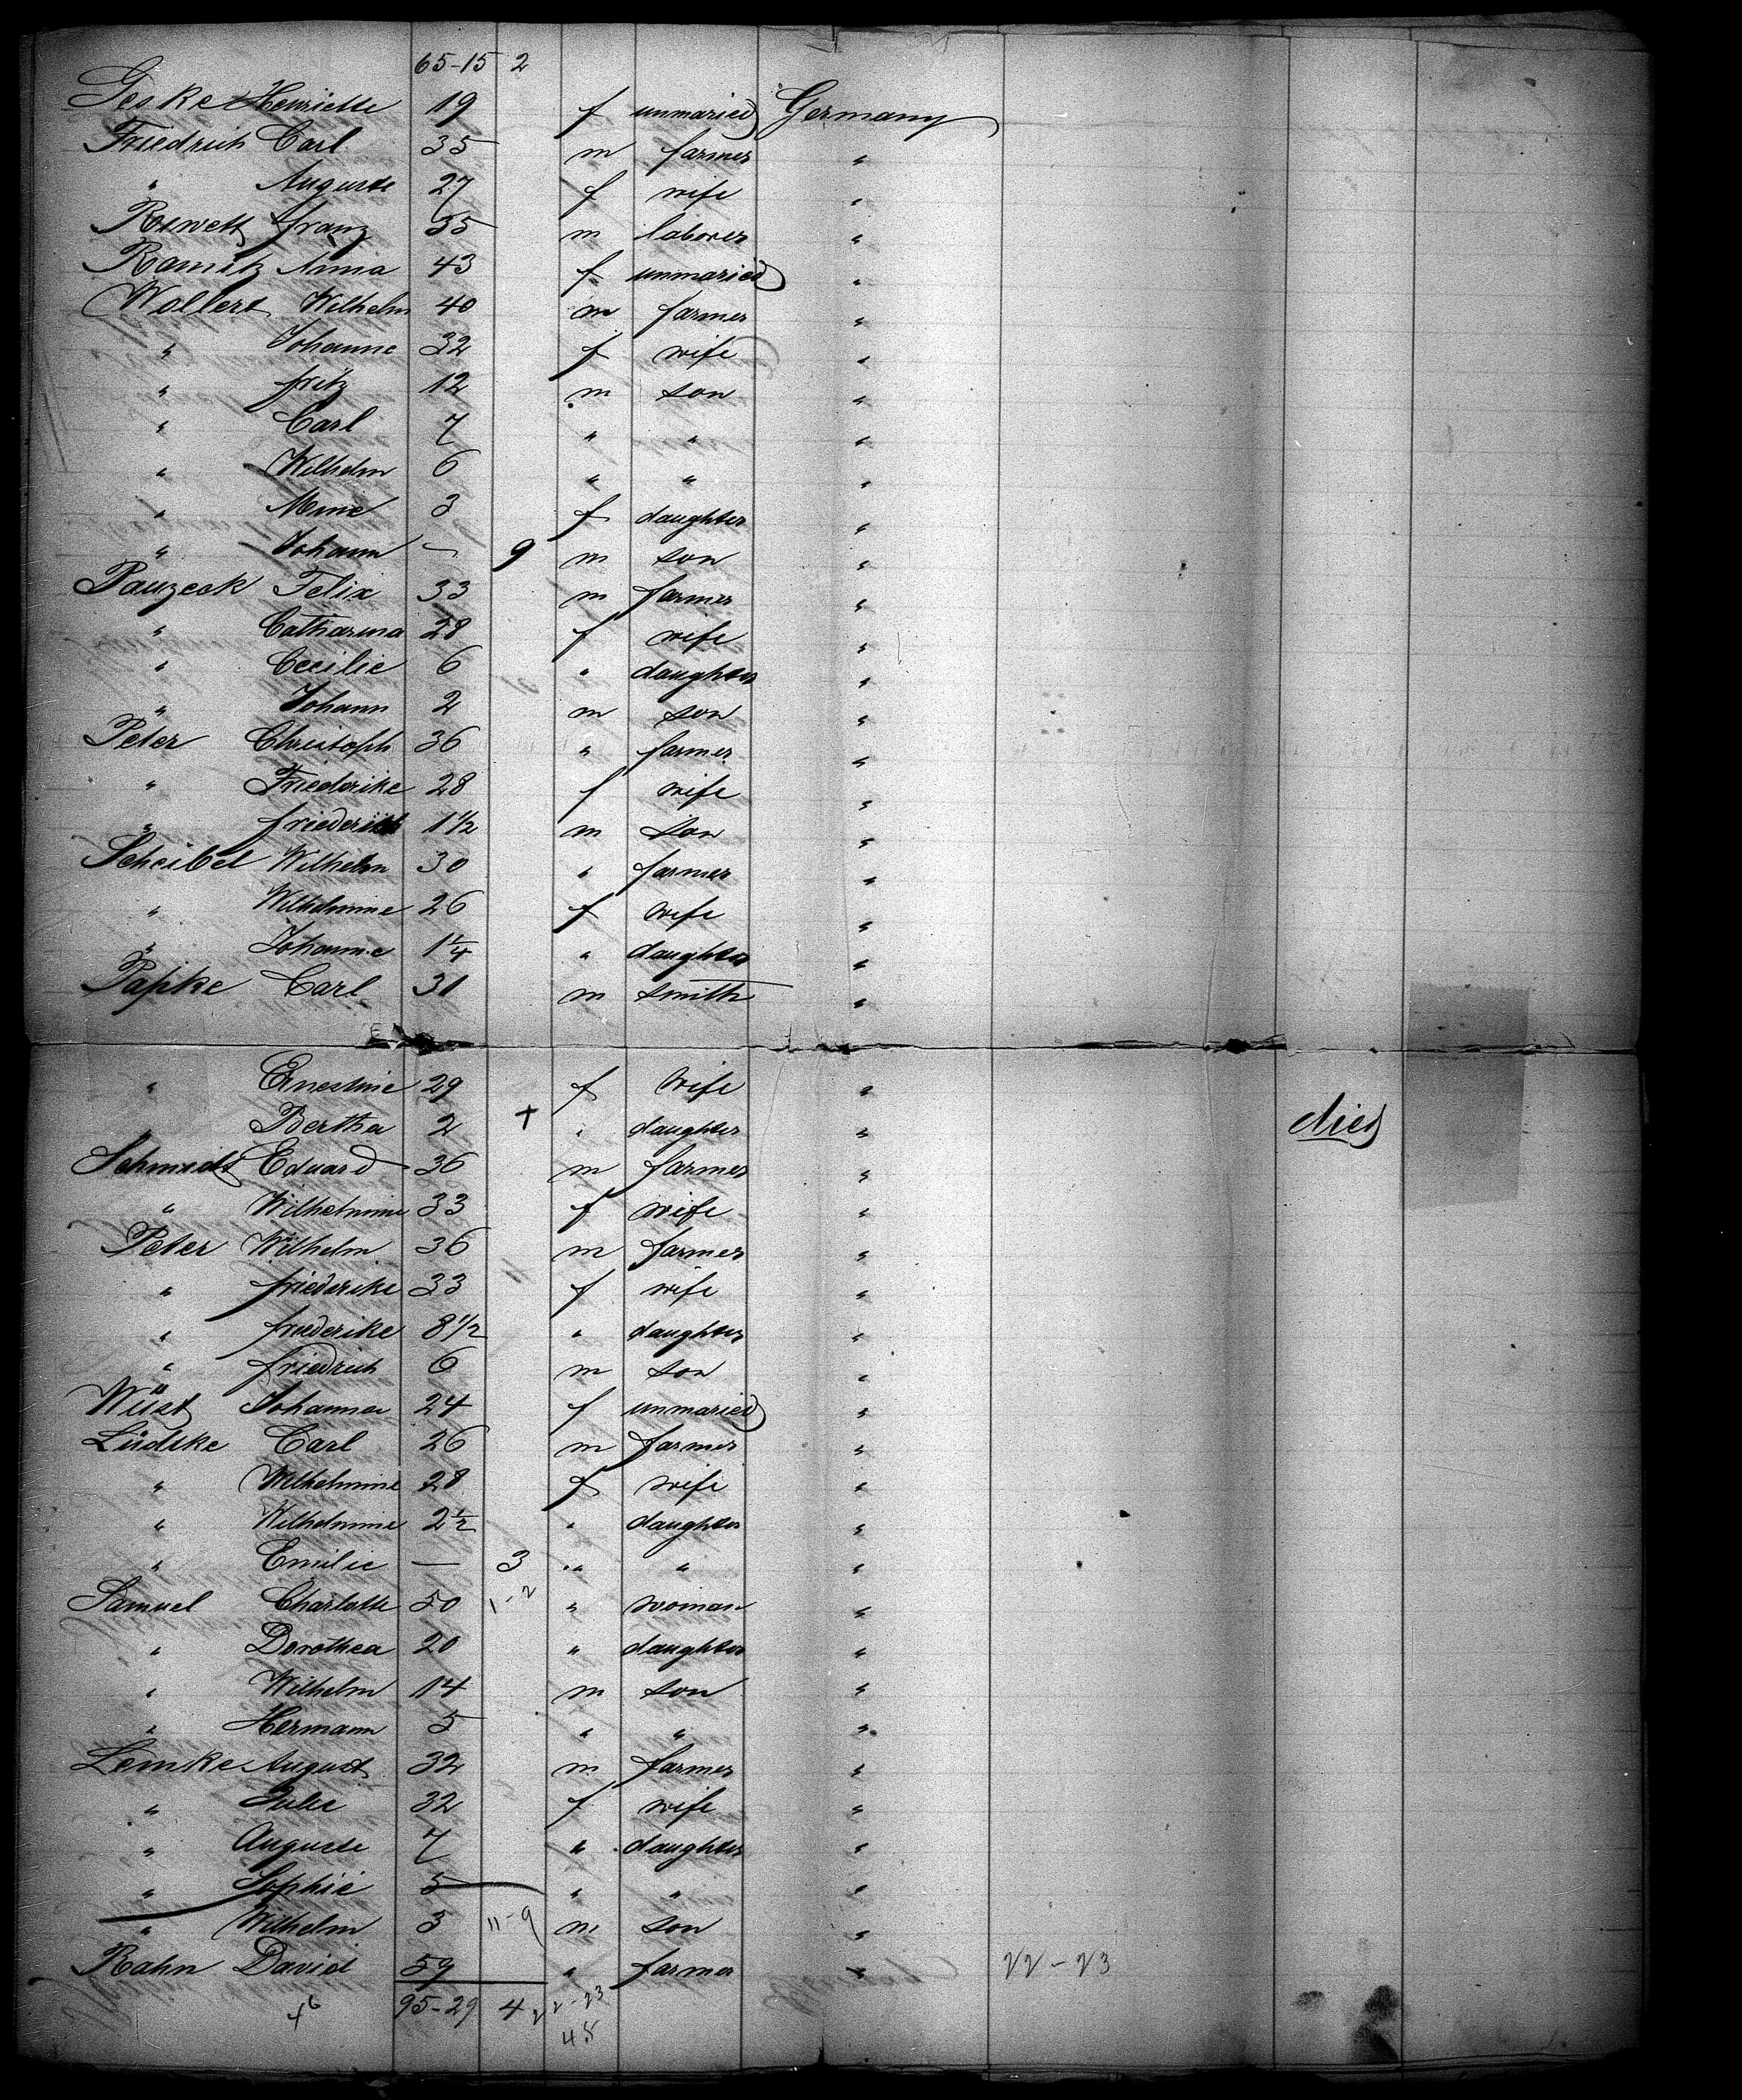 65-15 2
Geske Henriette 19 f unmaried Germany
Friedrich Carl 35 m farmer "
" Auguste 27 f wife "
Franz 35 m laborer "
Anna 43 f unmaried "
Wollert Wilhelm 40 m farmer "
" Johanne 32 f wife "
" fritz 12 m son "
" Carl 7 " " "
" Wilhelm 6 " " "
" Mine 3 f daughter "
" Johann — 9 m son "
Pauzeck Felix 33 m farmer "
" Catharina 28 f wife "
" Cecilie 6 " daughter "
" Johann 2 m son "
Peter Christoph 36 " farmer "
" Friederike 28 f wife "
" friederich 1 1/2 m son "
Scheibel Wilhelm 30 " farmer "
" Wilhelmine 26 f wife "
" Johanne 1 1/4 " daughter "
Papke Carl 31 m smith "
" Ernestine 29 f wife "
Bertha 2 + " daughter " died
Schmidt Eduard 36 m farmer "
" Wilhelmine 33 f wife "
Peter Wilhelm 36 m farmer "
" friederike 33 f wife "
" friederike 8 1/2 " daughter "
" friedrich 6 m son "
Wüst Johanna 24 f unmaried "
Lüdtke Carl 26 m farmer "
" Wilhelmine 28 f wife "
" Wilhelmine 2 1/2 " daughter "
" Emilie — 3 " " "
Samuel Charlotte 50 1-2 " woman "
" Dorothea 20 " daughter "
" Wilhelm 14 m son "
" Hermann 5 " " "
Lemke August 32 m farmer "
" Julie 32 f wife "
" Auguste 7 " daughter "
" Sophie 5 " " "
" Wilhelm 3 11-9 m son "
Rahn David 59 " farmer " 22-23
46 95-29 4 22-23
45